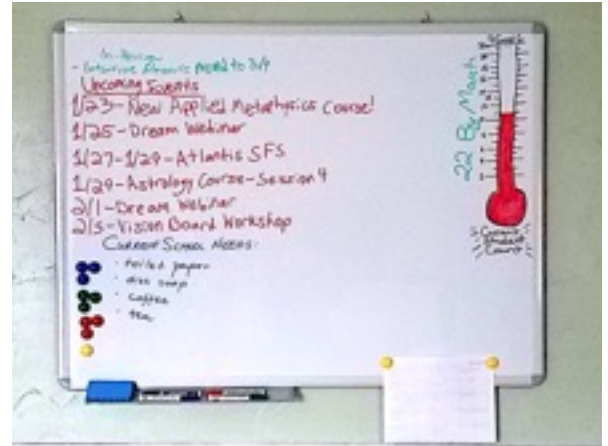 moved to 3/4
Upcoming Events
1/23- New Applied Metaphysics Course!
1/25- Dream Webinar
1/27-1/29- Atlantis SFS
1/29- Astrology Course- Session 4
2/1- Dream Webinar
2/5- Vision Board Workshop
Current School Needs:
· toilet paper
· dish soap
· coffee
· tea
22 By March
Current
Student
Count